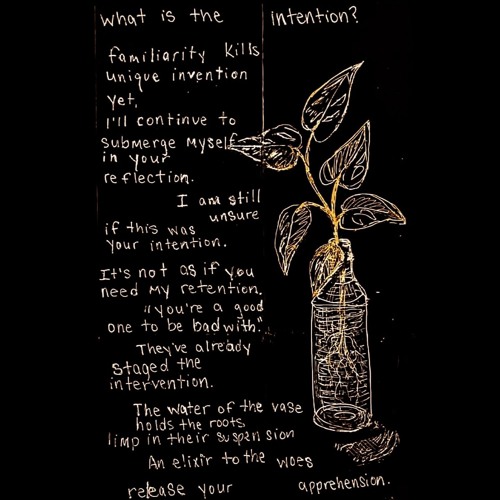 What is the intention?
familiarity kills
unique invention
yet,
I'll continue to
submerge myself
in your
reflection.
I am still
unsure
if this was
your intention.
It's not as if you
need my retention.
"you're a good
one to be bad with."
They've already
staged the
intervention.
The water of the vase
holds the roots,
limp in their suspension
An elixir to the woes
release your apprehension.